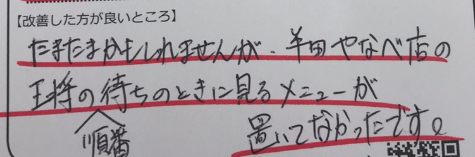 【改善した方が良いところ】
たまたまかもしれませんが、半田やなべ店の
王将の順番待ちのときに見るメニューが
置いてなかったです。